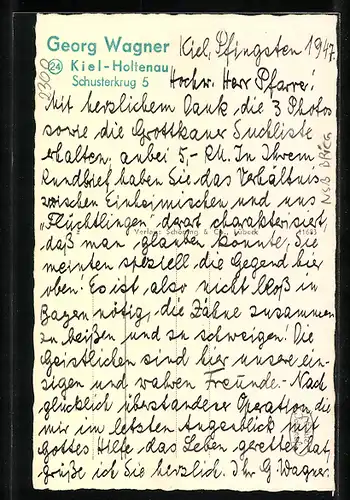 Georg Wagner
24 Kiel-Holtenau
Schusterkrug 5
Kiel, Pfingsten 1947.
Hochw. Herr Pfarrer!
Mit herzlichem Dank die 3 Photos
sowie die Grottkauer Suchliste
erhalten, anbei 5,- RM. In Ihrem
Rundbrief haben Sie das Verhältnis
zwischen Einheimischen und uns
"Flüchtlingen" derart charakterisiert,
daß man glauben könnte, Sie
Verlag: Schöning & Co., Lübeck
meinten speziell die Gegend hier
oben! Es ist also nicht bloß in
Bayern nötig, die Zähne zusammen
zu beißen und zu schweigen! Die
Geistlichen sind hier unsere ein-
zigen und wahren Freunde. - Nach
glücklich überstandener Operation, die
mir im letzten Augenblick mit
Gottes Hilfe das Leben gerettet hat,
grüße ich Sie herzlich. Ihr G. Wagner.